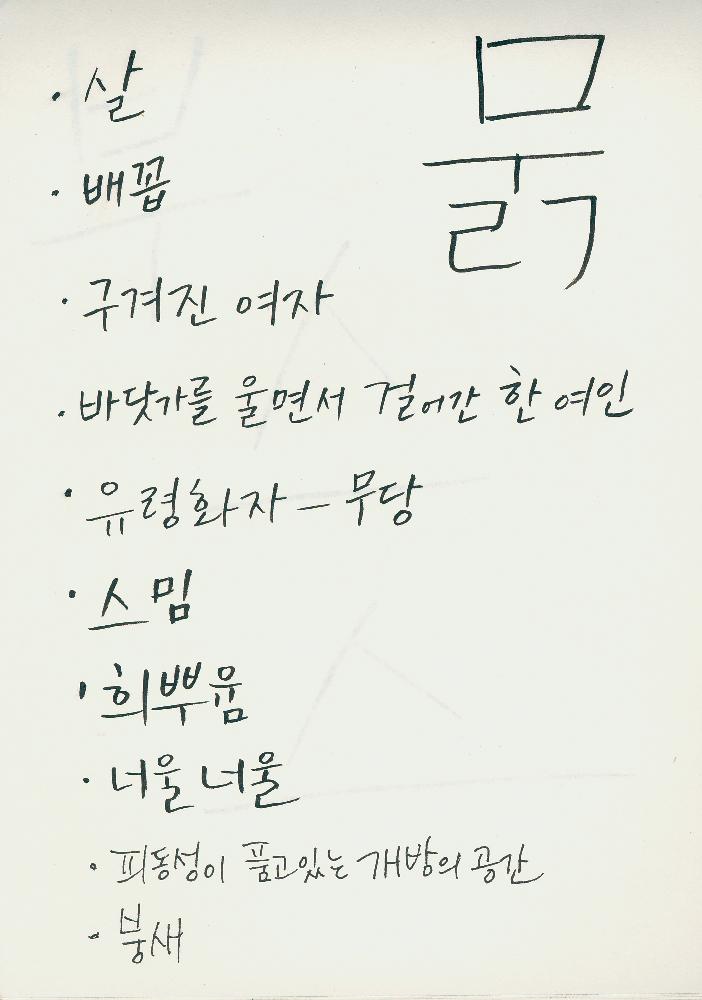 묽
· 살
· 배꼽
· 구겨진 여자
· 바닷가를 울면서 걸어간 한 여인
· 유령화자 – 무당
· 스밈
· 희뿌윰
· 너울너울
· 피동성이 품고있는 개방의 공간
· 붕새